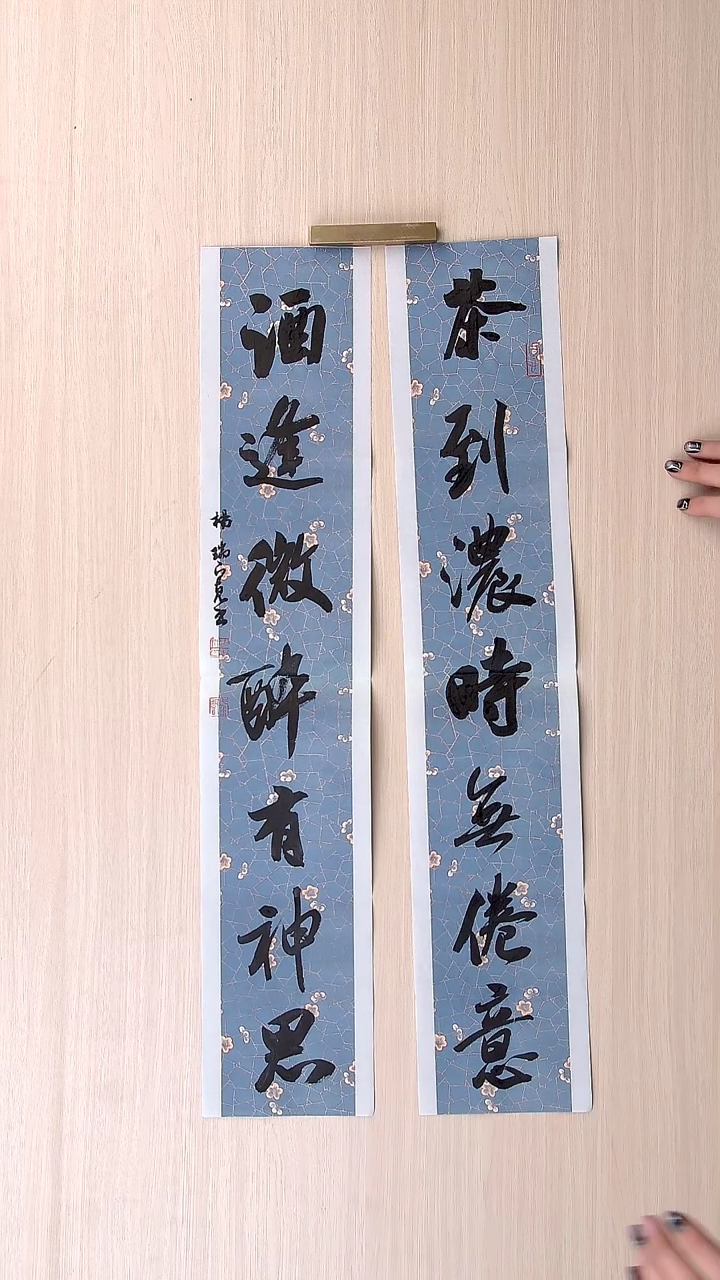 茶到濃時無倦意
酒逢微醉有神思
楊瑞